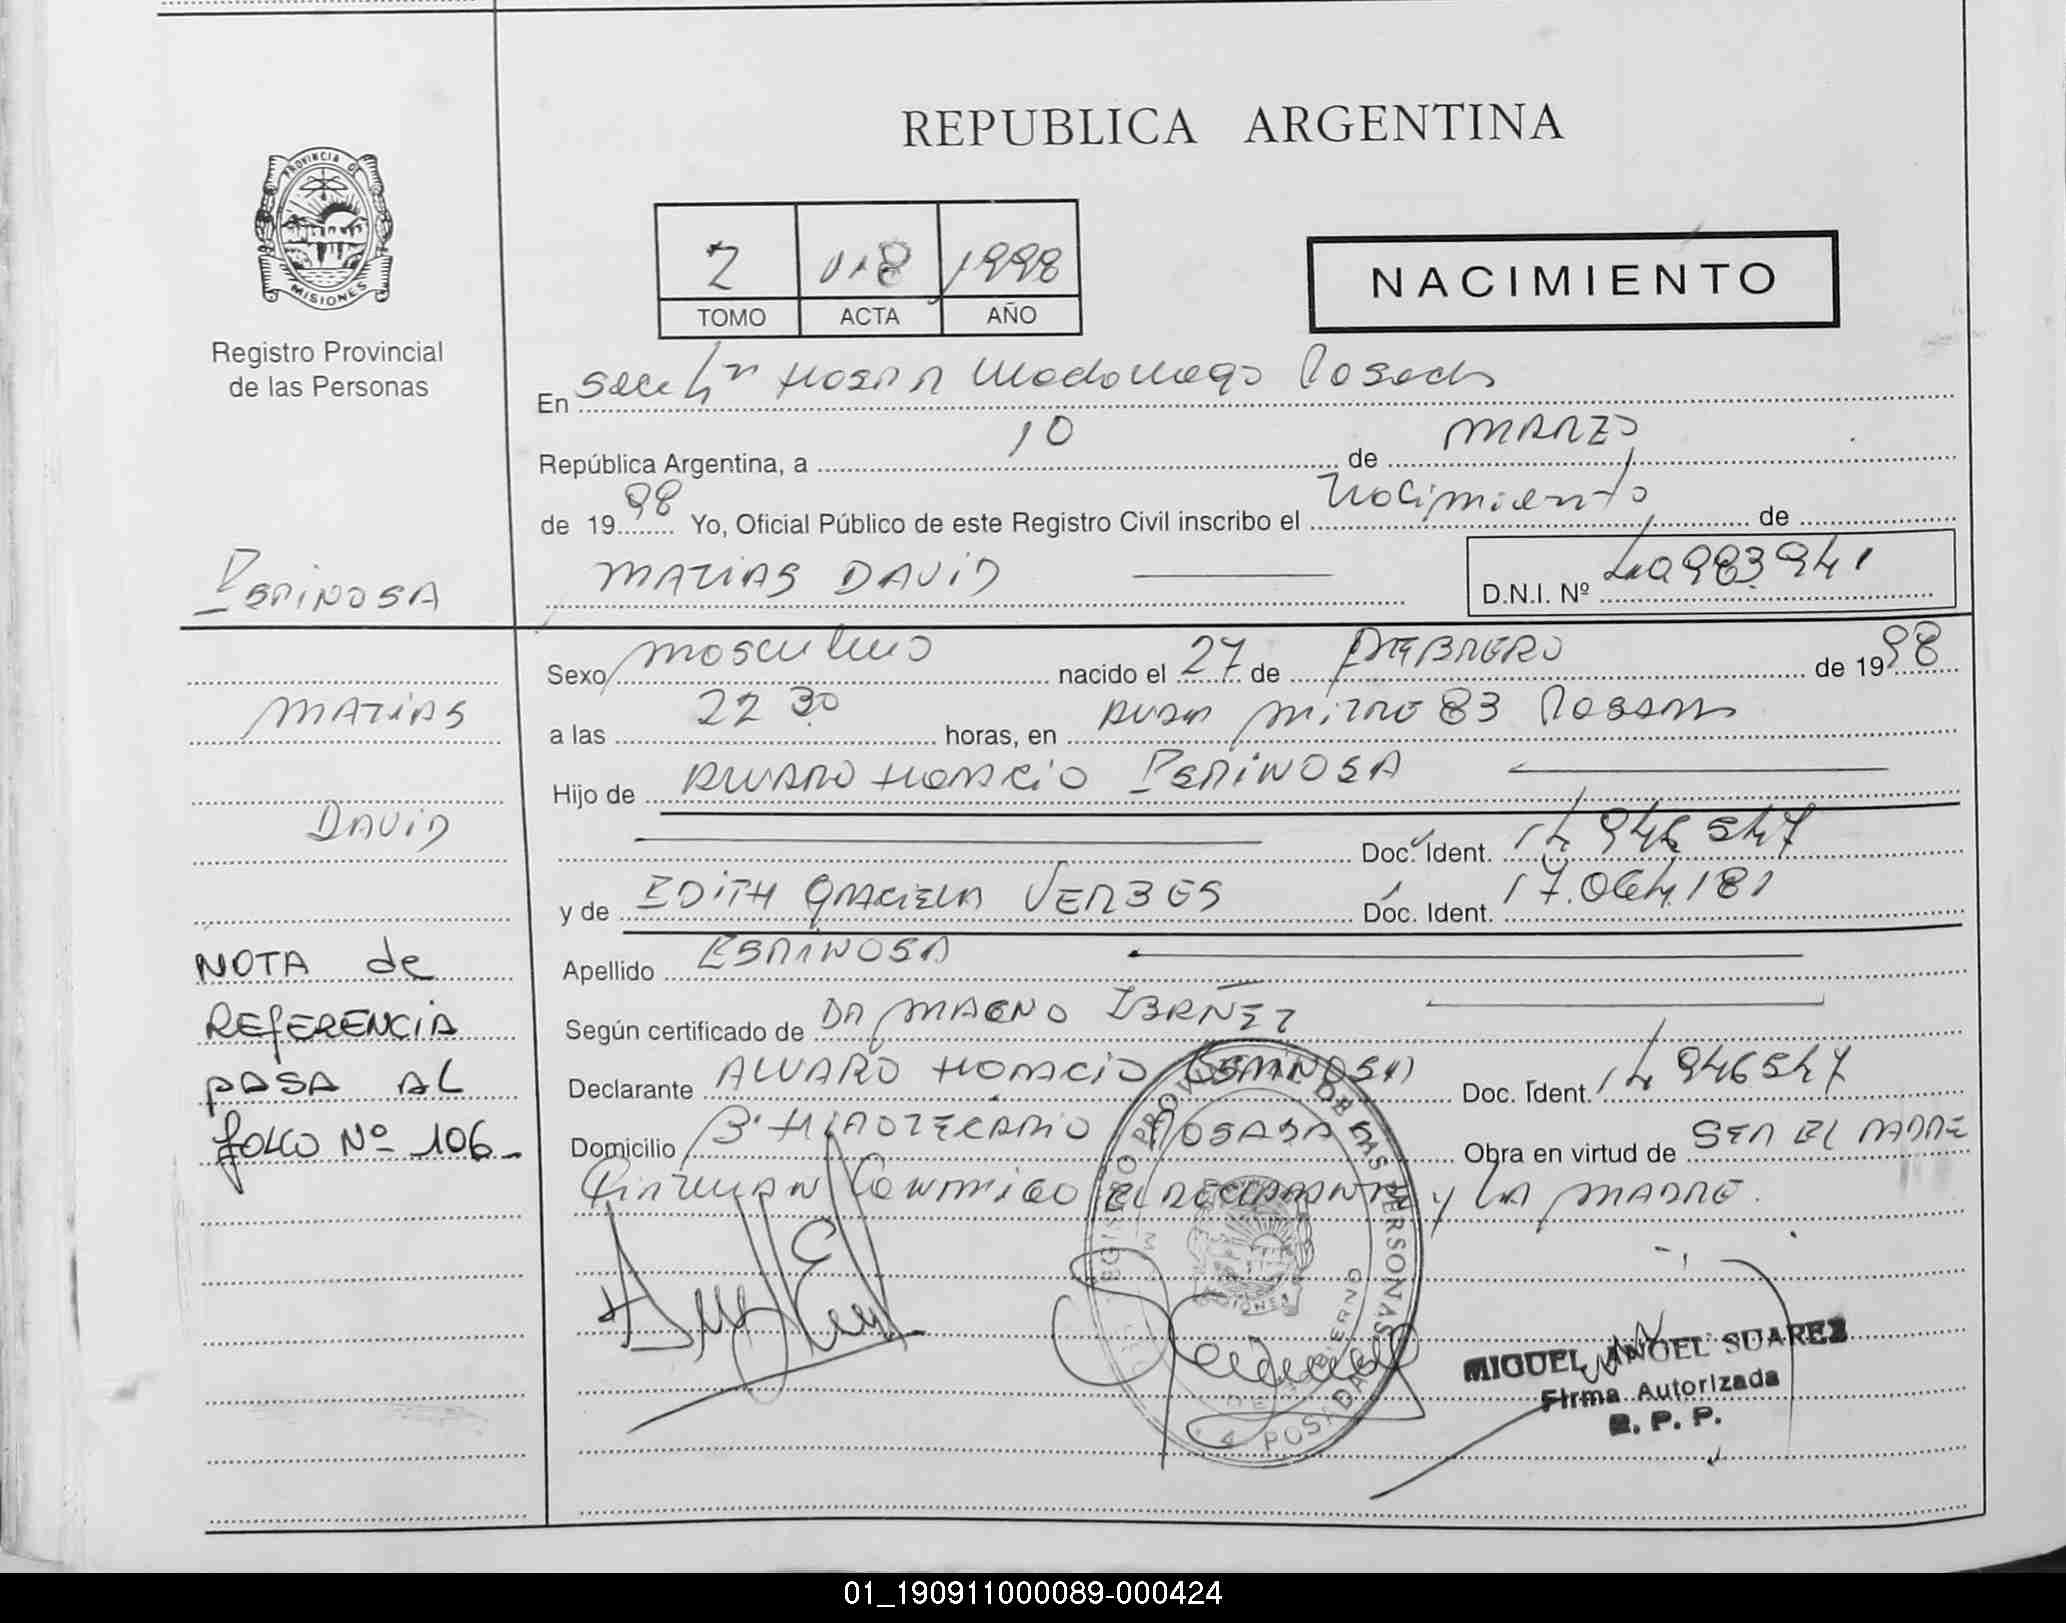 REPUBLICA ARGENTINA
PROVINCIA DE
MISIONES
2 1998
TOMO ACTA AÑO
NACIMIENTO
Registro Provincial
de las Personas
En Posadas
República Argentina, a 10 de MARZO
de 1998 Yo, Oficial Público de este Registro Civil inscribo el Nacimiento de
ESPINOSA
MATIAS DAVID
D.N.I. Nº 40983941
Sexo masculino nacido el 27 de FEBRERO de 1998
MATIAS
a las 22 30 horas, en MITRE 83 Posadas
Hijo de ALVARO HORACIO ESPINOSA
DAVID
Doc. Ident. 14 946 547
y de EDITH GRACIELA Doc. Ident. 17.064.181
NOTA de
Apellido ESPINOSA
REFERENCIA
Según certificado de DR MAGNO IBAÑEZ
PASA AL
Declarante ALVARO HORACIO ESPINOSA Doc. Ident. 14 946547
FOLIO Nº 106
Domicilio Bº HIPOTECARIO POSADAS Obra en virtud de SER EL PADRE
FIRMAN CONMIGO EL DECLARANTE y LA MADRE.
REGISTRO PROVINCIAL DE LAS PERSONAS
POSADAS
MIGUEL ANGEL SUAREZ
Firma Autorizada
R. P. P.
01_190911000089-000424